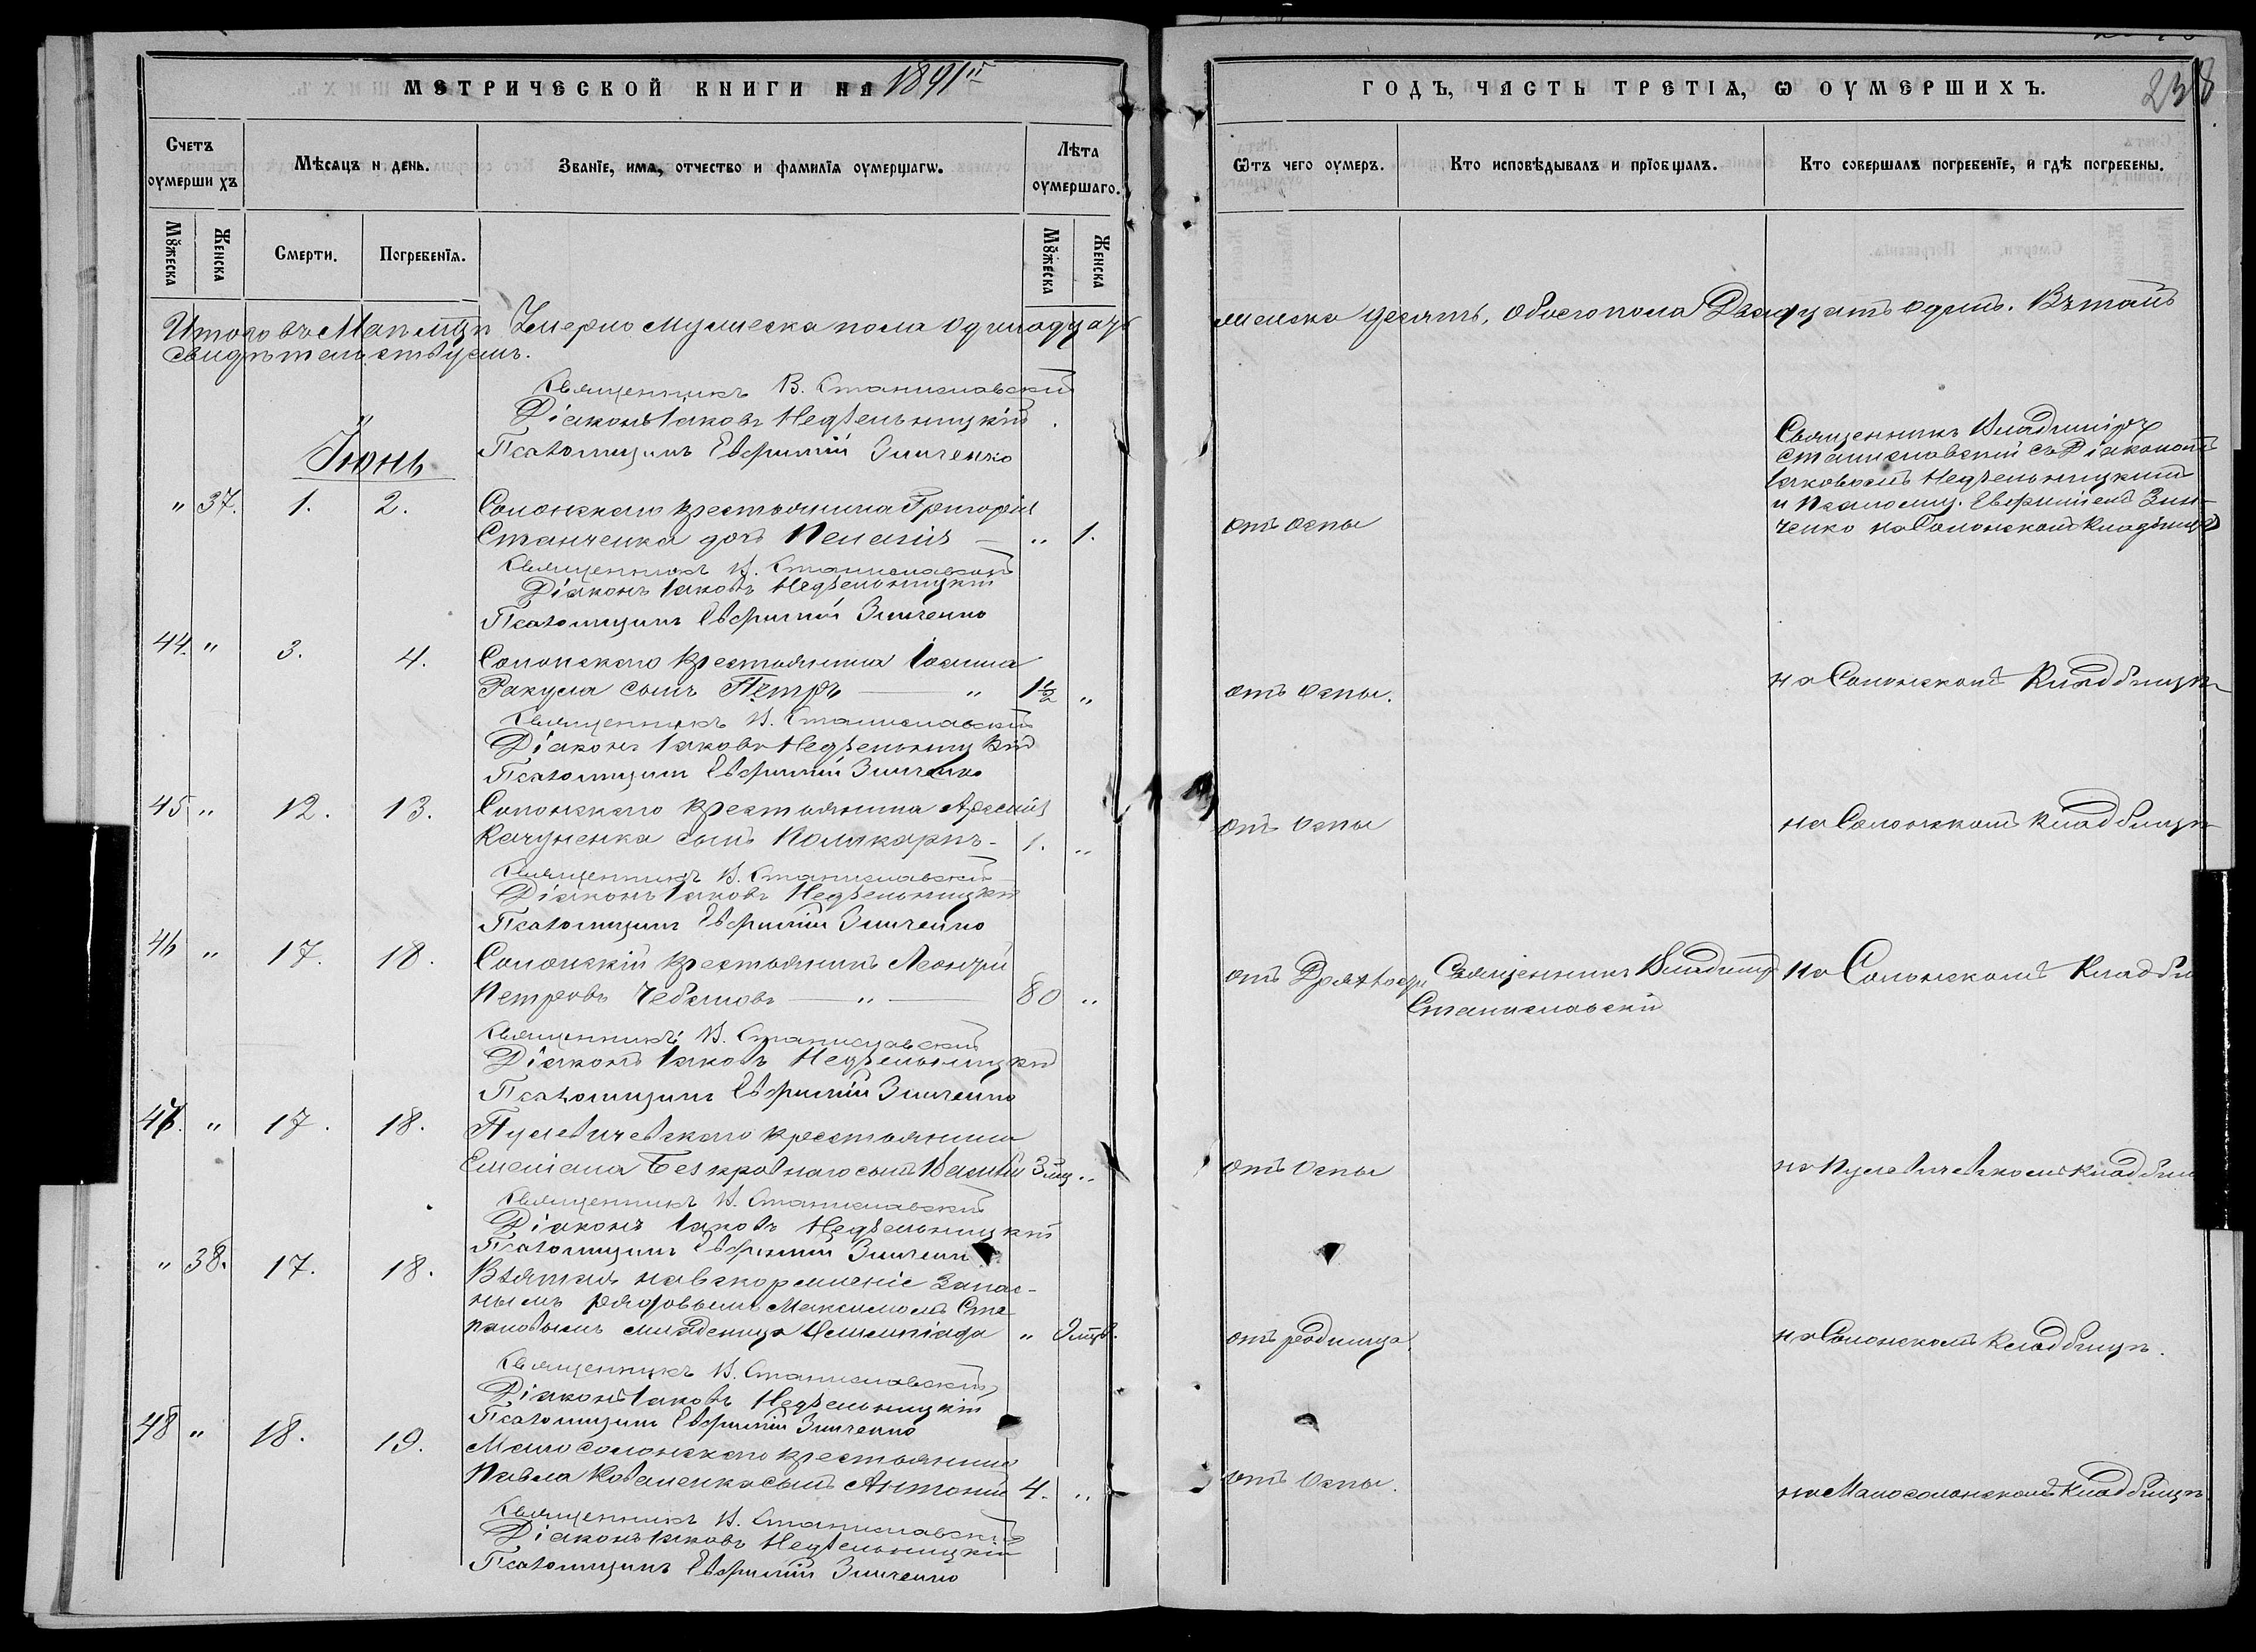 МЕТРИЧЕСКОЙ КНИГИ НА 1891й
ГОДЪ, ЧАСТЬ ТРЕТІѦ, Ѡ ОУМЕРШИХЪ.
238
Счетъ оумершихъ
Мѣсѧцъ и день.
Званїе, имѧ, отчество и фамилїѧ оумершагѡ.
Лѣта оумершаго.
Ѿтъ чего оумеръ.
Кто исповѣдывалъ и прїобщалъ.
Кто совершалъ погребенїе, и гдѣ погребены.
Мꙋжеска
Женска
Смерти.
Погребенїѧ.
Мꙋжеска
Женска
Итого въ Маѣ мцѣ Умерло мужеска пола одинадцать
женска десять, обоего пола Двадцать одинъ. Въ томъ
свидѣтельствуемъ.
Священникъ В. Станиславскій
Діаконъ Іаковъ Недѣльницкій
Псаломщикъ Евфимій Зинченко
Іюнь
" 37. 1. 2. Солонскаго крестьянина Григорія
Станченка дочь Пелагія — " 1.
отъ оспы
Священникъ Владиміръ
Станиславскій съ Діакономъ
Іаковомъ Недѣльницкимъ
и Псаломщ. Евфиміемъ Зин-
ченко на Солонскомъ кладбищѣ
Священникъ В. Станиславскій
Діаконъ Іаковъ Недѣльницкій
Псаломщикъ Евфимій Зинченко
44. " 3. 4. Солонскаго крестьянина Іоанна
Ракула сынъ Петръ — " 1½ "
отъ оспы.
на Солонскомъ Кладбищѣ
Священникъ В. Станиславскій
Діаконъ Іаковъ Недѣльницкій
Псаломщикъ Евфимій Зинченко
45 " 12. 13. Солонскаго крестьянина Арсенія
Качуненка сынъ Поликарпъ - 1. "
отъ оспы
на Солонскомъ кладбищѣ
Священникъ В. Станиславскій
Діаконъ Іаковъ Недѣльницкій
Псаломщикъ Евфимій Зинченко
46 " 17. 18. Солонскій крестьянинъ Леонтій
Петровъ Чебановъ — " — 80 "
отъ
Священникъ Владиміръ
Станиславскій
на Солонскомъ Кладби
Священникъ В. Станиславскій
Діаконъ Іаковъ Недѣльницкій
Псаломщикъ Евфимій Зинченко
47. " 17. 18. Пулевичевскаго крестьянина
Емеліана Безкровнаго сынъ 3 мц. "
отъ оспы
на Пулевичевскомъ кладби
Священникъ В. Станиславскій
Діаконъ Іаковъ Недѣльницкій
Псаломщикъ Евфимій Зинченко
" 38. 17. 18. Взятая на вскормленіе Запас-
нымъ рядовымъ Максимомъ Сте
пановымъ младенца Олимпіада "
отъ родимца.
на Солонскомъ Кладбищѣ.
Священникъ В. Станиславскій
Діаконъ Іаковъ Недѣльницкій
Псаломщикъ Евфимій Зинченко
48 " 18. 19. Малосолонскаго крестьянина
Павла Коваленка сынъ Антоній 4. "
отъ оспы.
на Малосолонскомъ Кладбищѣ
Священникъ В. Станиславскій
Діаконъ Іаковъ Недѣльницкій
Псаломщикъ Евфимій Зинченко